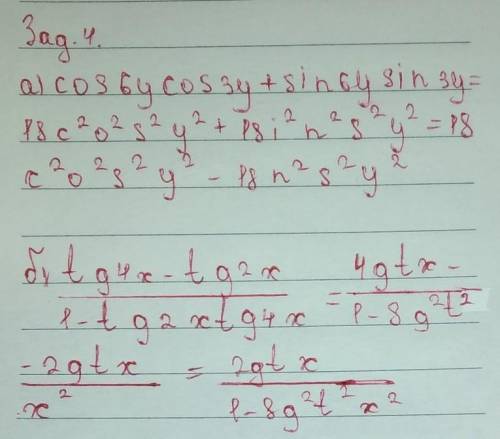 Зад. 4.
а) cos6ycos3y+sin6ysin3y=
18c²o²s²y²+18i²n²s²y²=18
c²o²s²y²-18n²s²y²
б) tg4x-tg2x / 1-tg2xtg4x = 4gtx- / 1-8g²t²
-2gtx / x² = 2gtx / 1-8g²t²x²